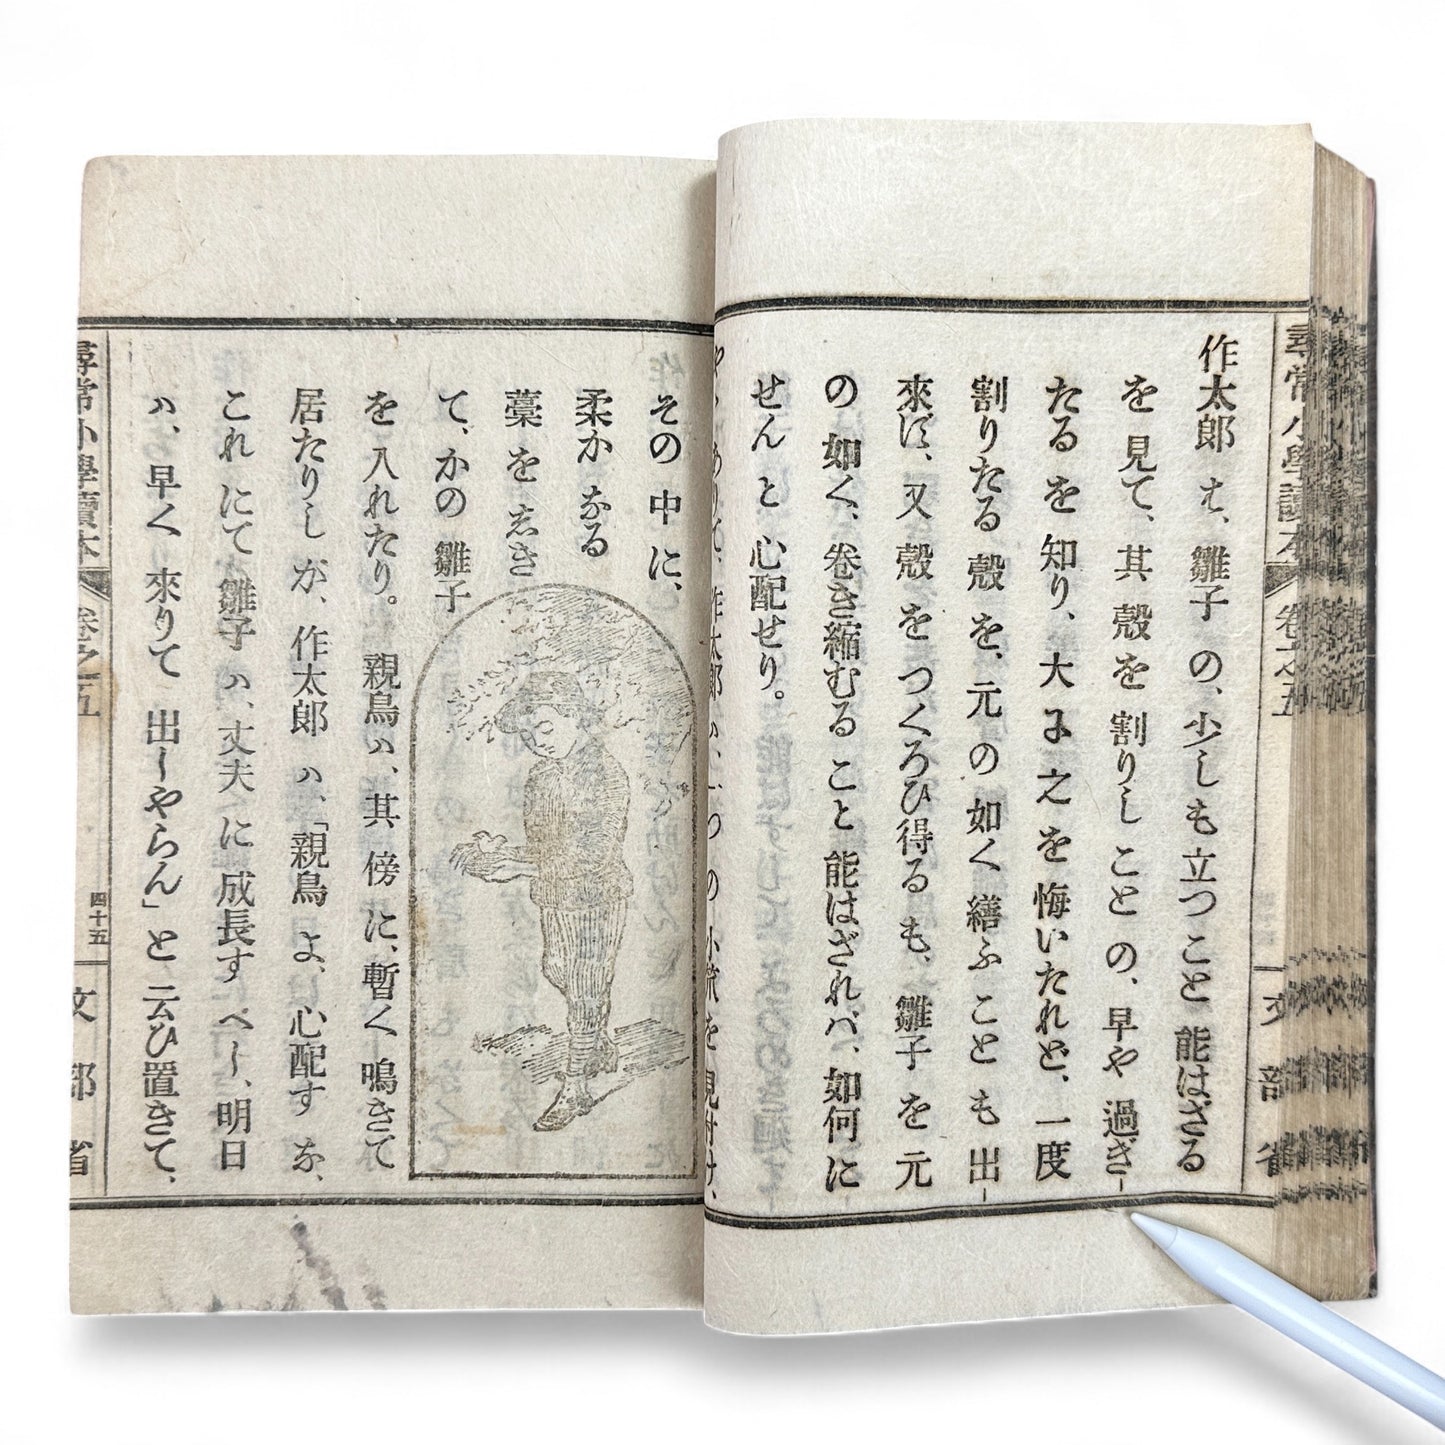 尋常小學讀本 卷之五 文部省
作太郎 は、雛子 の、少しも立つこと 能はざる
を 見て、其 殼 を 割りしことの、早や 過ぎ
たるを 知り、大に之を 悔いたれど、一度
割りたる 殼 を、元 の 如く 繕ふ ことも 出
來ず、又 殼 を つくろひ得るも、雛子 を 元
の 如く、卷き縮むる こと 能はざれバ、如何に
せんと 心配せり。
やゝありて、作太郎 ハ、一つ の 小 を 見付け、
その 中に、
柔か なる
藁 を しき
て、かの 雛子
を 入れたり。親鳥 ハ、其 傍 に、暫く 鳴きて
居たりし が、作太郎 ハ、「親鳥 よ、心配す な、
これ にて、雛子 ハ、丈夫に 成長す べし、明日
ハ、早く 來りて 出しやらん」と 云ひ置きて、
尋常小學讀本 卷之五 四十五 文部省